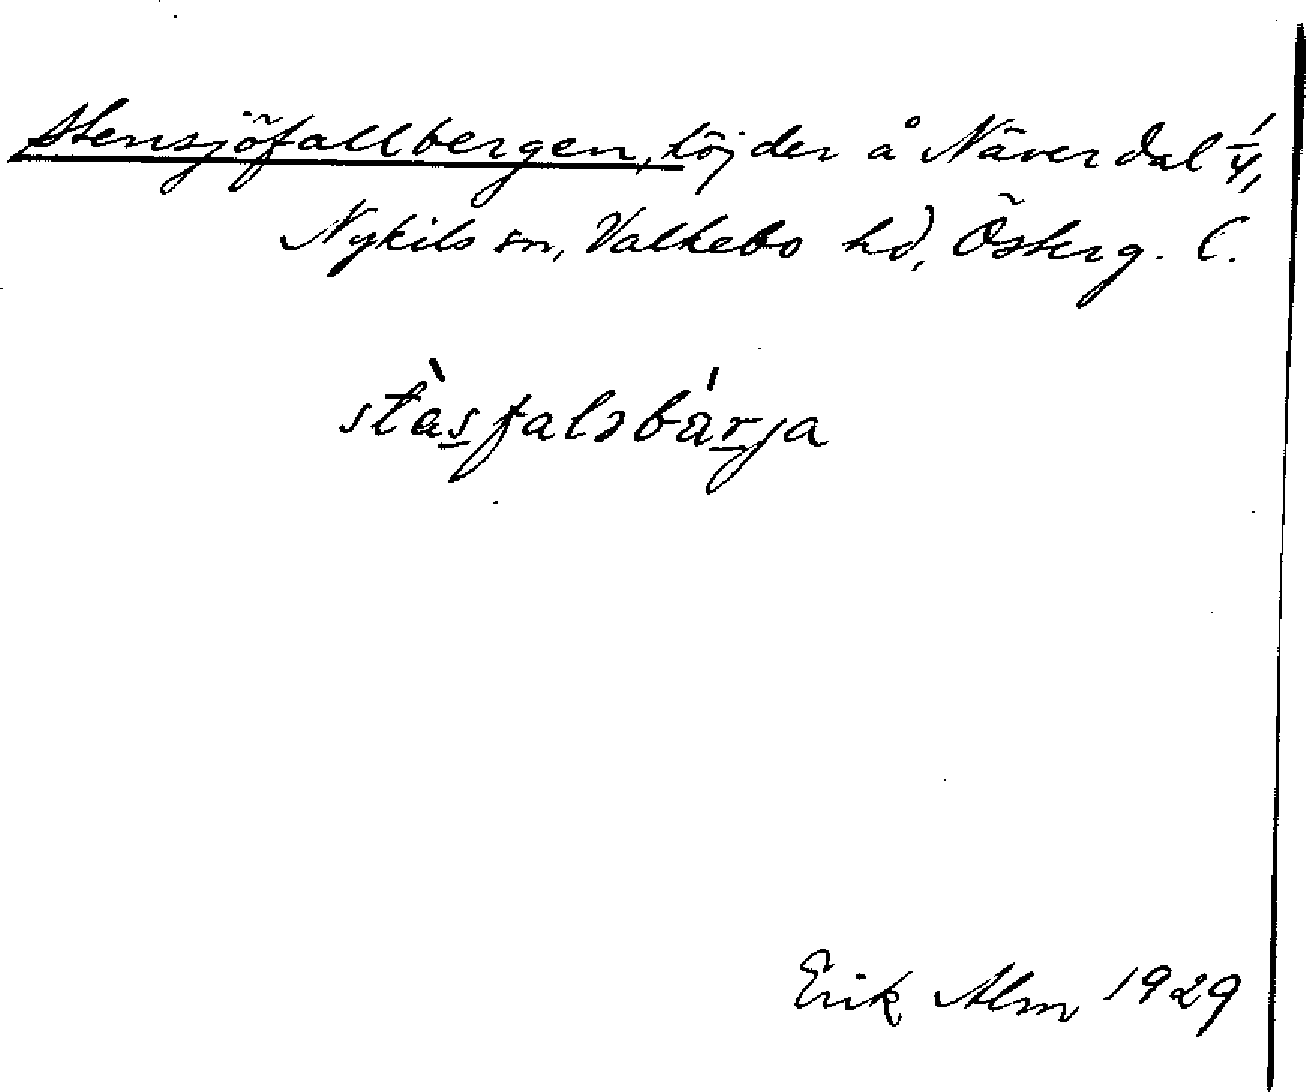 Stensjöfallbergen, höjder å Näverdal 1/4,
Nykils sn, Valkebo hd, Österg. l.
stàsfalsbárja
Erik Alm 1929